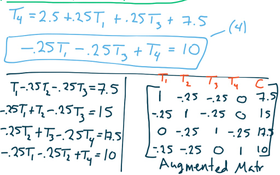 T₄ = 2.5 + .25T₁ + .25T₃ + 7.5
(4)
-.25T₁ - .25T₃ + T₄ = 10
T₁ - .25T₂ - .25T₃ = 7.5
-.25T₁ + T₂ - .25T₃ = 15
-.25T₂ + T₃ - .25T₄ = 12.5
-.25T₁ - .25T₂ + T₄ = 10
T₁ T₂ T₃ T₄ C
1 -.25 -.25 0 7.5
-.25 1 -.25 0 15
0 -.25 1 -.25 12.5
-.25 -.25 0 1 10
Augmented Matr